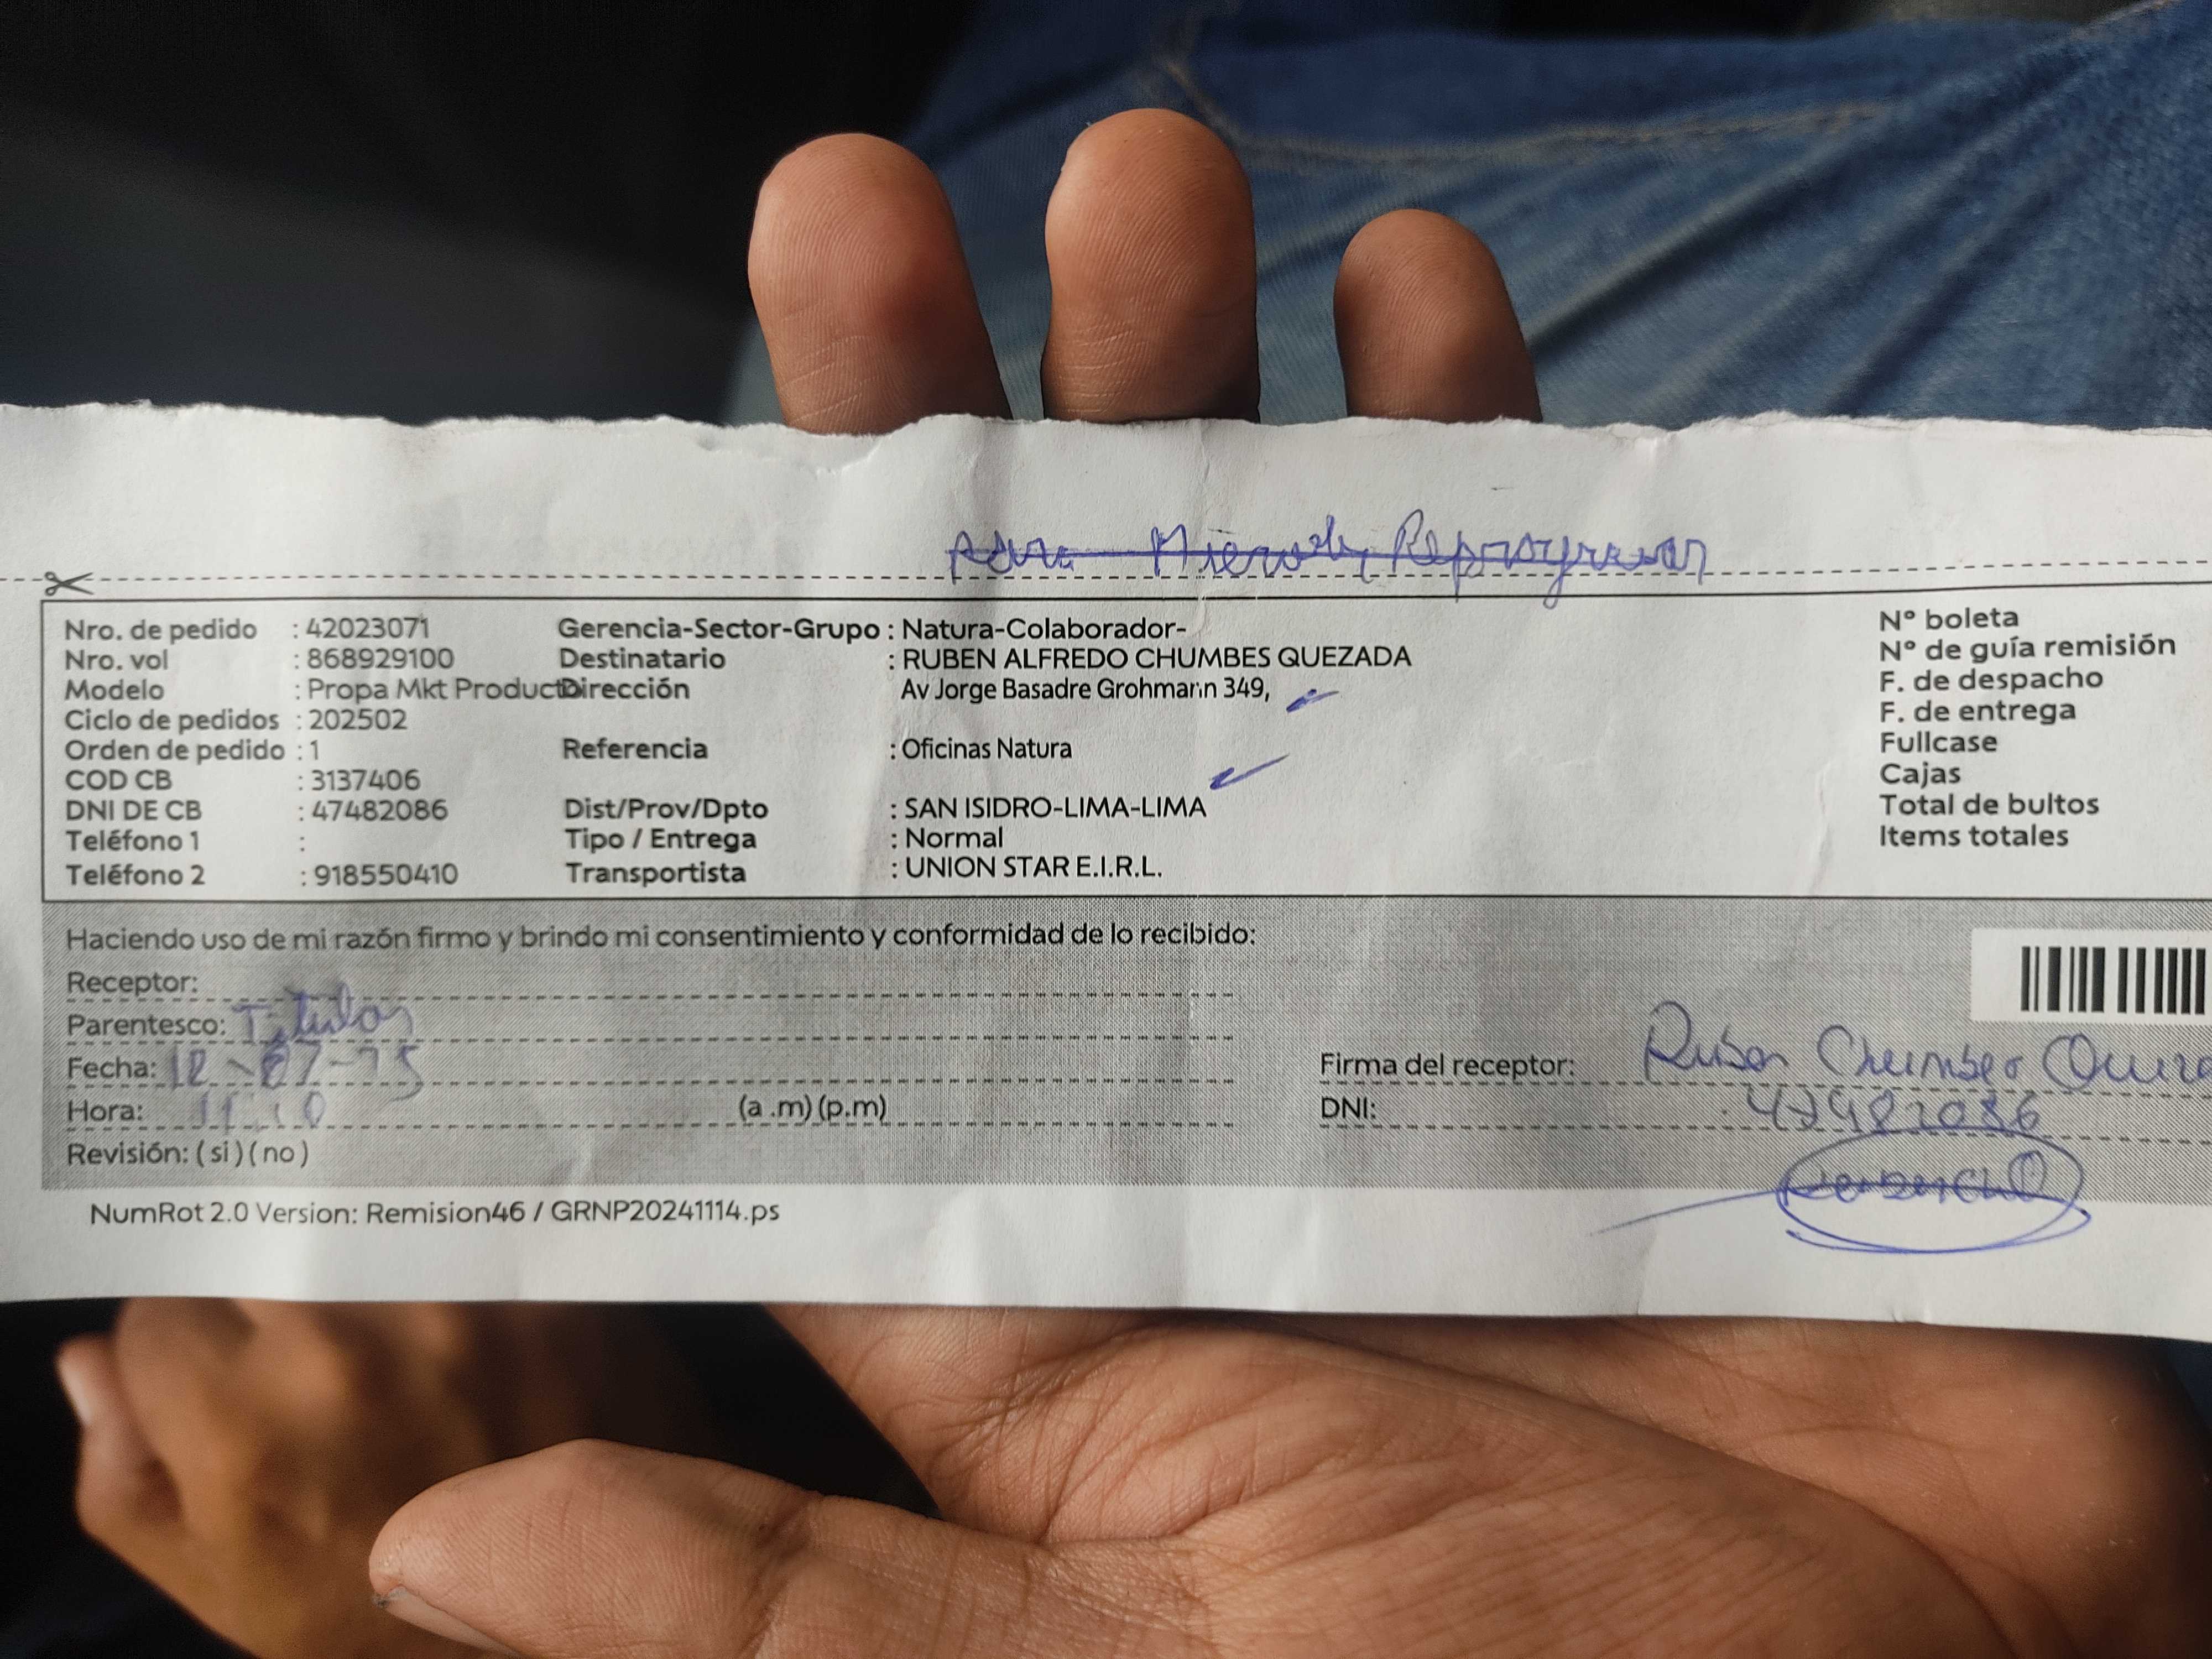 Para Miercoles Reprogramar
Nro. de pedido : 42023071 Gerencia-Sector-Grupo : Natura-Colaborador- N° boleta
Nro. vol : 868929100 Destinatario : RUBEN ALFREDO CHUMBES QUEZADA N° de guía remisión
Modelo : Propa Mkt Producto Dirección Av Jorge Basadre Grohmann 349, F. de despacho
Ciclo de pedidos : 202502 F. de entrega
Orden de pedido : 1 Referencia : Oficinas Natura Fullcase
COD CB : 3137406 Cajas
DNI DE CB : 47482086 Dist/Prov/Dpto : SAN ISIDRO-LIMA-LIMA Total de bultos
Teléfono 1 : Tipo / Entrega : Normal Items totales
Teléfono 2 : 918550410 Transportista : UNION STAR E.I.R.L.
Haciendo uso de mi razón firmo y brindo mi consentimiento y conformidad de lo recibido:
Receptor:
Parentesco: Titular
Fecha: Firma del receptor: Ruben Chumbes
Hora: 11:10 (a .m) (p.m) DNI: 47482086
Revisión: ( si ) ( no )
NumRot 2.0 Version: Remision46 / GRNP20241114.ps